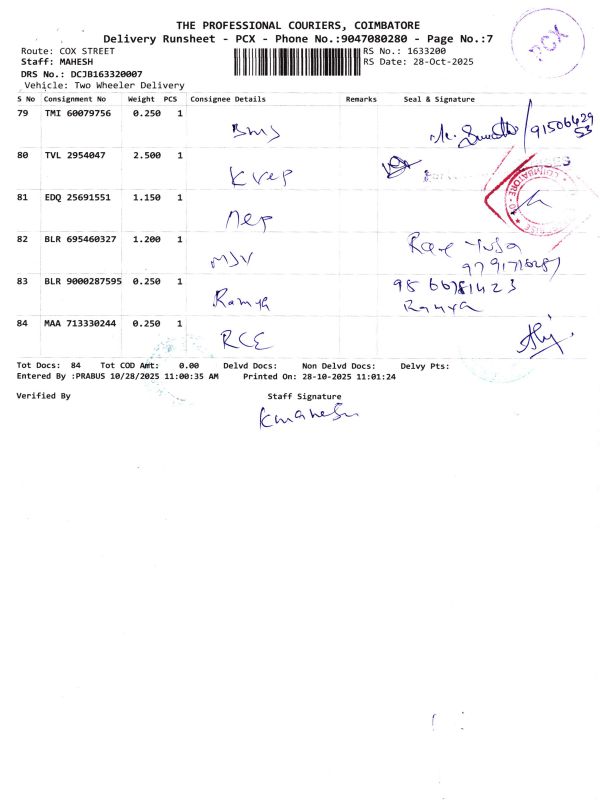 THE PROFESSIONAL COURIERS, COIMBATORE
Delivery Runsheet - PCX - Phone No.:9047080280 - Page No.:7
PCX
Route: COX STREET
RS No.: 1633200
Staff: MAHESH
RS Date: 28-Oct-2025
DRS No.: DCJB163320007
Vehicle: Two Wheeler Delivery
S No Consignment No Weight PCS Consignee Details Remarks Seal & Signature
79 TMI 60079756 0.250 1 BMS
80 TVL 2954047 2.500 1 KVEP
81 EDQ 25691551 1.150 1 MEP
COIMBATORE
82 BLR 695460327 1.200 1 MJV
83 BLR 9000287595 0.250 1 Ramya 98 66781423
Ramya
84 MAA 713330244 0.250 1 RCE
Tot Docs: 84 Tot COD Amt: 0.00 Delvd Docs: Non Delvd Docs: Delvy Pts:
Entered By :PRABUS 10/28/2025 11:00:35 AM Printed On: 28-10-2025 11:01:24
Verified By Staff Signature
Kmahesh